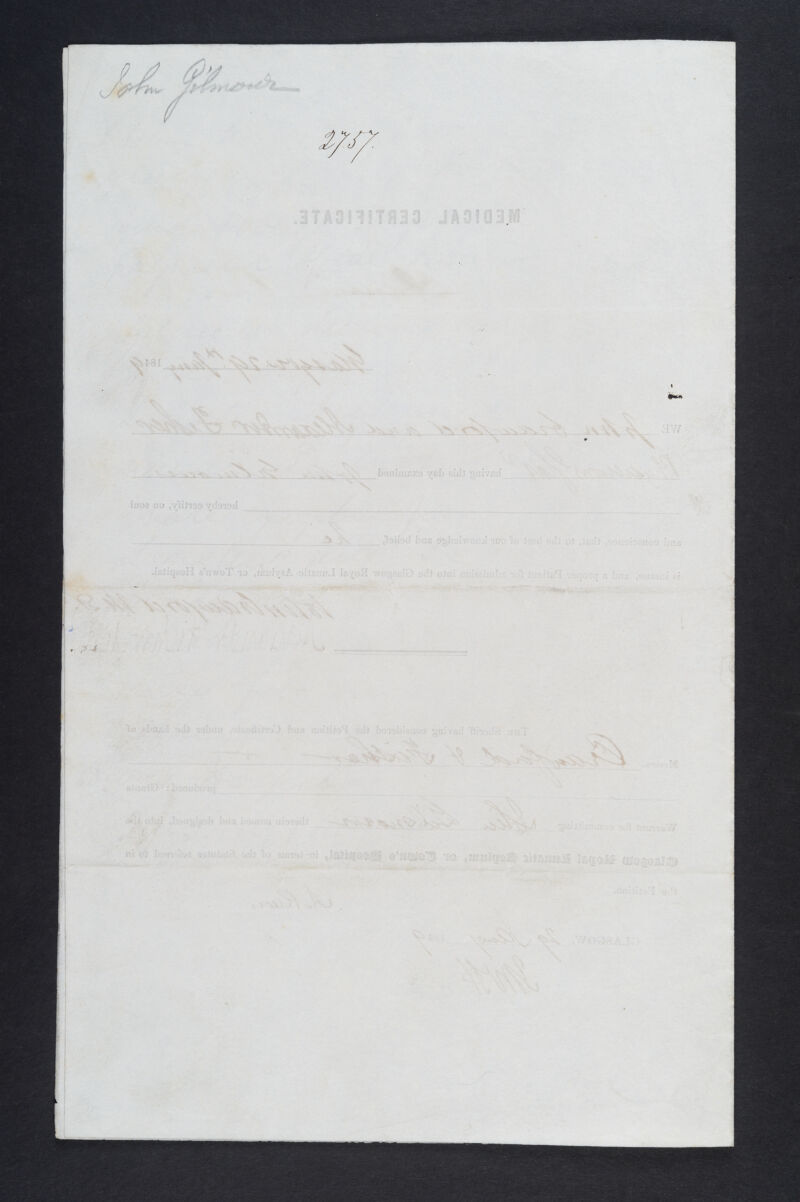 John Gilmour
2757.
MEDICAL CERTIFICATE.
Glasgow 29th Jany 1849
WE John Crawford and Alexander Fisher
having this day examined John Gilmour
hereby certify, on soul
and conscience, that, to the best of our knowledge and belief, he
is insane, and a proper Patient for admission into the Glasgow Royal Lunatic Asylum, or Town's Hospital.
John Crawford M.D.
THE Sheriff having considered the Petition and Certificate, under the hands of
Messrs. Crawford & Fisher
produced: Grants
Warrant for committing John Gilmour therein named and designed, into the
Glasgow Royal Lunatic Asylum, or Town's Hospital, in terms of the Statutes referred to in
the Petition.
GLASGOW, 29 Jany 1849